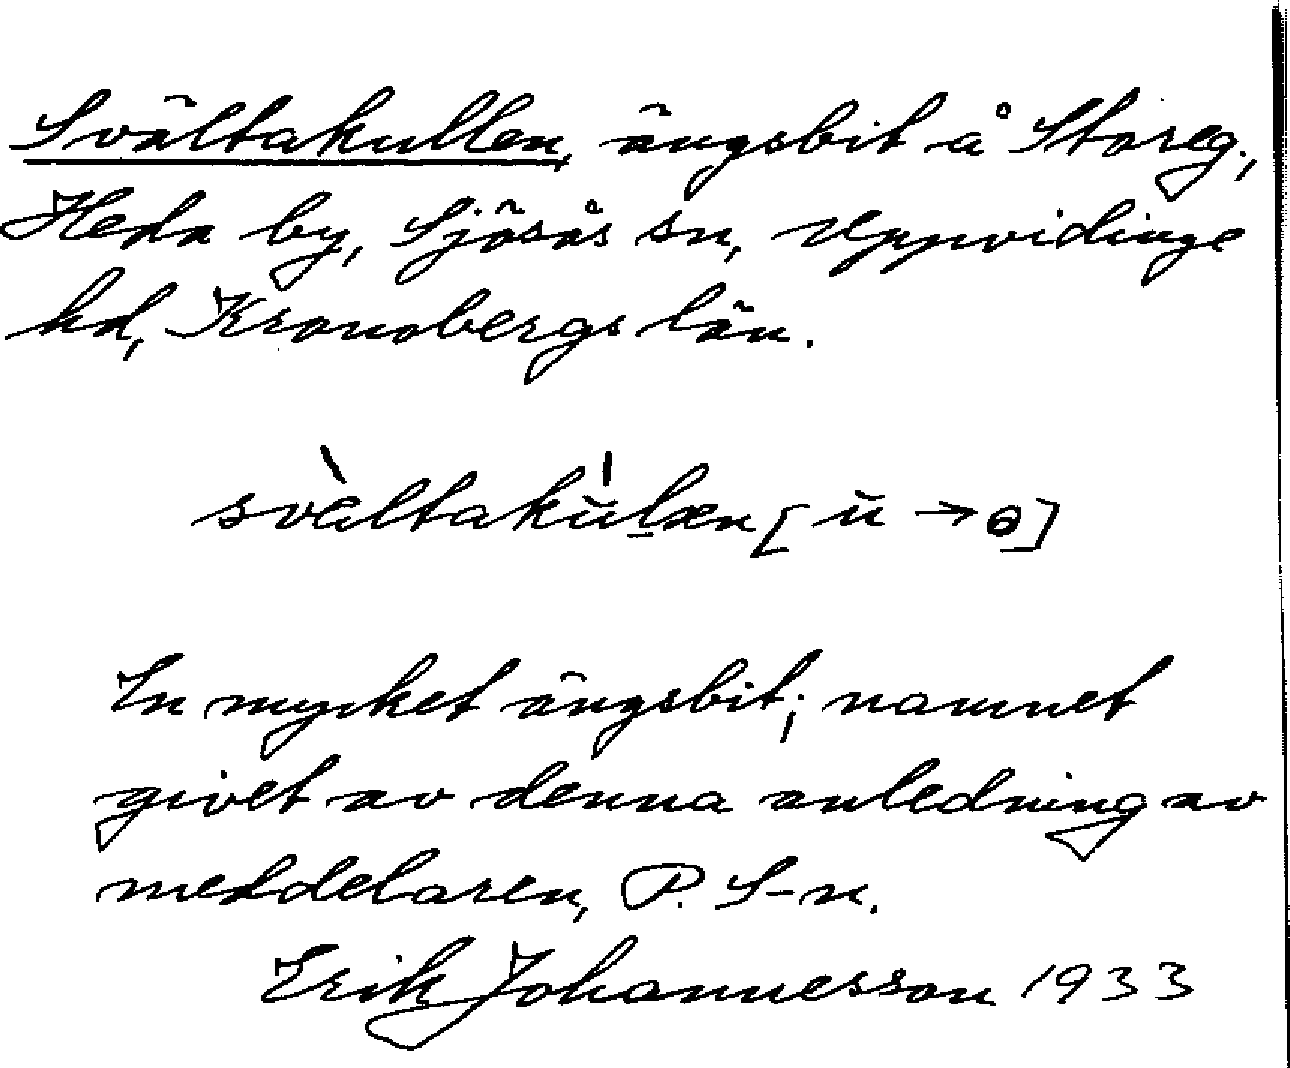 Svältakullen, ängsbit å Storeg.,
Heda by, Sjösås sn, Uppvidinge
hd, Kronobergs län.
svàltakŭlæn [ŭ → ɵ]
En mycket ängsbit; namnet
givet av denna anledning av
meddelaren, P. S-n.
Erik Johannesson 1933